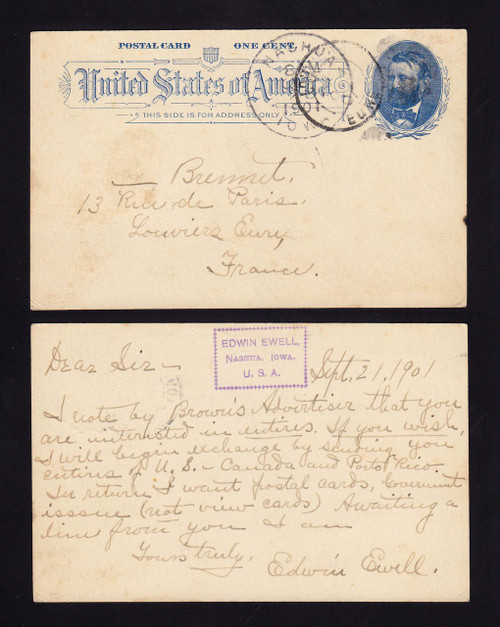 POSTAL CARD ONE CENT.
United States of America.
THIS SIDE IS FOR ADDRESS ONLY
NASHUA
IOWA
1901
EURE
13 Rue de Paris.
Louviers Eure,
France.
EDWIN EWELL,
NASHUA, IOWA.
U. S. A.
Dear Sir—
Sept. 21, 1901
I note by Brown's Advertiser that you
are interested in entires. If you wish,
I will begin exchange by sending you
entires of U.S. - Canada and Porto Rico.
In return I want postal cards, Government
issue (not view cards) Awaiting a
line from you I am
Yours truly,
Edwin Ewell.